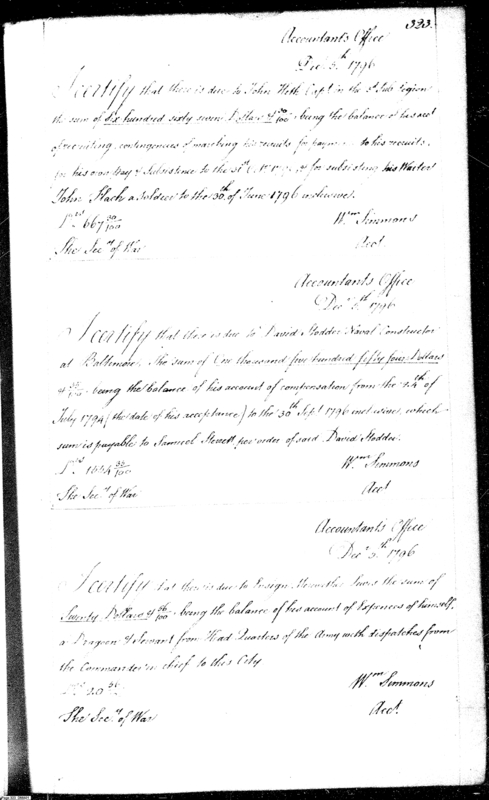 323.
Accountants Office
Dec.r 5th 1796
I certify that there is due to John Heth Capt. in the 3d Sub Legion
the sum of Six hundred sixty seven Dollars & 30/100 being the balance of his acct
of recruiting, contingences of marching his recruits for to his recruits,
for his own Pay & Subsistence to the 31st & for subsisting his Waiter
John Slach a Soldier to the 30th of June 1796 inclusive.
667 30/100
Wm Simmons
The Secy of War
Acct.
Accountants Office
Decr 5th 1796
I certify that there is due to David Stodder Naval Constructor
at Baltimore, The sum of One thousand five hundred fifty four Dollars
& being the balance of his account of compensation from the 24th of
July 1794 (the date of his acceptance) to the 30th Sept 1796 inclusive, which
sum is payable to Samuel Sterett per order of said David Stodder.
Wm Simmons
The Secy of War
Acct
Accountants Office
Decr 5th 1796
I certify that there is due to Ensign Lewis the sum of
Twenty Dollars & 56/100 being the balance of his account of Expences of himself,
a Dragoon & Servant from Head Quarters of the Army with dispatches from
the Commander in chief to this City
20 56
Wm Simmons
The Secy of War
Acct.